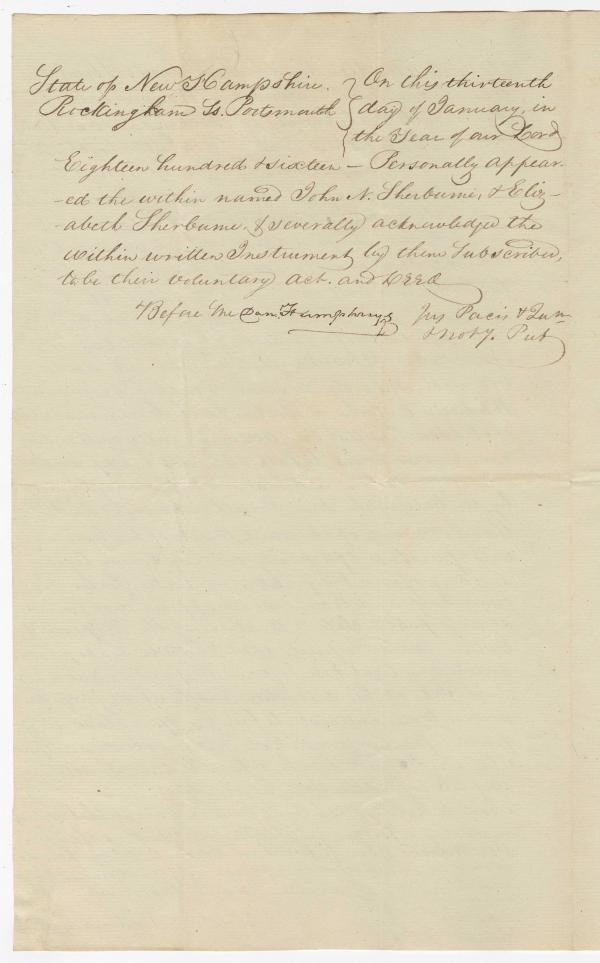 State of New Hampshire.
Rockingham Ss. Portsmouth
On this thirteenth
day of January, in
the Year of our Lord
Eighteen hundred & sixteen — Personally appear-
-ed the within named John N. Sherburne, & Eliz-
-abeth Sherburne. & severally acknowledged the
within written Instrument by them Subscribed,
to be their voluntary act. and Deed
Before Me Dan. Humphreys Jus Pacis & Qum
& Noty. Pub